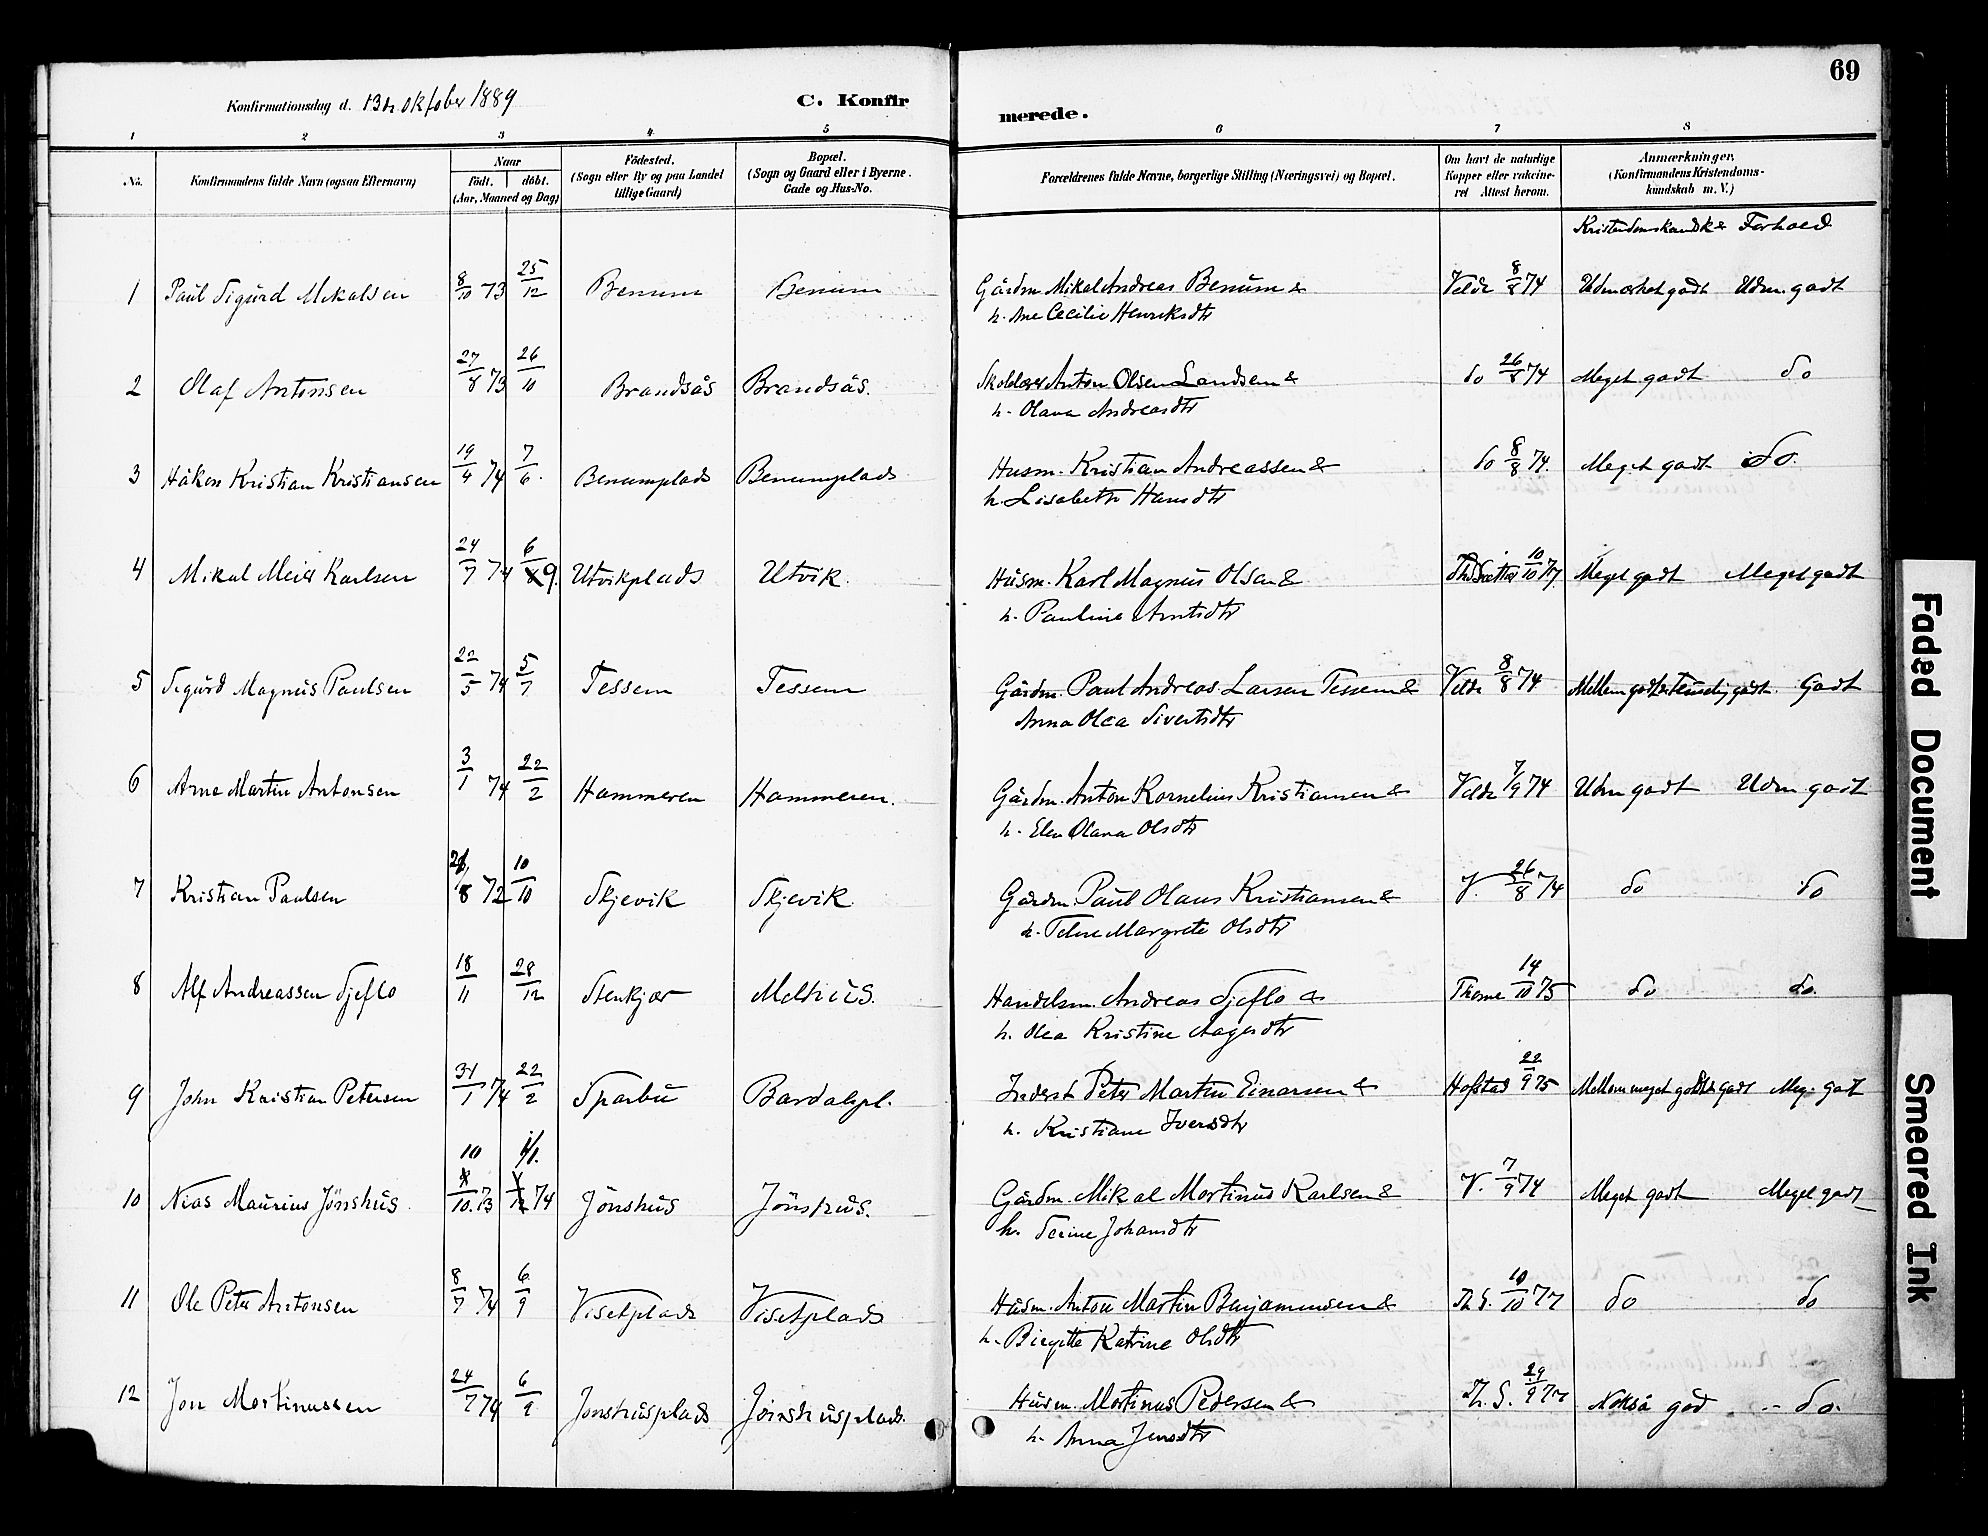 69
Konfirmationsdag d. 13de Oktober 1889
C. Konfirmerede.
1 2 3 4 5 6 7 8
No.
Konfirmandens fulde Navn (ogsaa Efternavn)
Naar
Födt. döbt.
(Aar, Maaned og Dag)
Födested.
(Sogn eller By og paa Landet
tillige Gaard)
Bopæl.
(Sogn og Gaard eller i Byerne.
Gade og Hus-No.
Forældrenes fulde Navne, borgerlige Stilling (Næringsvei) og Bopæl.
Om havt de naturlige
Kopper eller vakcine-
ret Attest herom.
Anmærkninger.
(Konfirmandens Kristendoms-
kundskab m. V.)
Kristendomskundsk & Forhold
1 Paul Sigurd Mikalsen 8/10 73 25/12 Benum Benum Gårdm. Mikal Andreas Benum & Velde 8/8 74 Udmærket godt Udm. godt
h. Ane Cecilie Henriksdtr
2 Olaf Antonsen 27/8 73 26/10 Brandsås Brandsås. Skolelærer Anton Olsen Landsem & do 26/8 74 Meget godt do
h. Olava Andreasdtr
3 Håkon Kristian Kristiansen 19/4 74 7/6. Benumplads Benumplads Husm. Kristian Andreassen & do 8/8 74. Meget godt do.
h. Lisabeth Hansdtr
4 Mikal Meier Karlsen 24/7 74 6/9. Utvikplads Utvik. Husm. Karl Magnus Olsen & Th. Sætter 10/10 77. Meget godt Meget godt
h. Pauline Arntsdtr
5 Sigurd Magnus Paulsen 22/5 74 5/7 Tessem Tessem Gårdm. Paul Andreas Larsen Tessem & Velde 8/8 74 Mellem godt & Temmelig godt. Godt
Anna Olea Sivertsdtr
6 Arne Martin Antonsen 3/1 74 22/2 Hammeren Hammeren. Gårdm. Anton Kornelius Kristiansen & Velde 7/9 74 Udm godt Udm godt
h. Elen Olava Olsdtr
7 Kristian Paulsen 8 72 10/10 Skjevik Skjevik. Gårdm. Paul Olaus Kristiansen & V. 26/8 74 do do
h. Margrete Olsdtr
8 Alf Andreassen Sjeflo 18/11 28/12 Stenkjær Melhus. Handelsm. Andreas Sjeflo & Thorne 14/10 75 do do.
h. Olea Kristine Aagesdtr
9 John Kristian Petersen 31/1 74 22/2 Sparbu Bardalspl. Inderst Peter Martin Einarsen & Hofstad 22/9 75 Mellem meget godt & godt Meg. godt
h. Kristiane Iversdtr
10 Nias Maurius Jönshus. 10/10. 73 1/1. 74 Jönshus Jönshus. Gårdm. Mikal Martinus Karlsen & V. 7/9 74 Meget godt Meget godt
h. Serine Johansdtr
11 Ole Peter Antonsen 8/7. 74 6/9 Visetplads Visetplads Husm. Anton Martin Benjaminsen & Th S. 10/10 77 do do
h. Birgitte Katrine Olsdtr
12 Jon Martinussen 24/7 74 6/9 Jonshusplads Jönshusplads. Husm. Martinus Pedersen & Th. S. 29/9 77 Nokså god do.
h. Anna Jensdtr
Faded Document
Smeared Ink